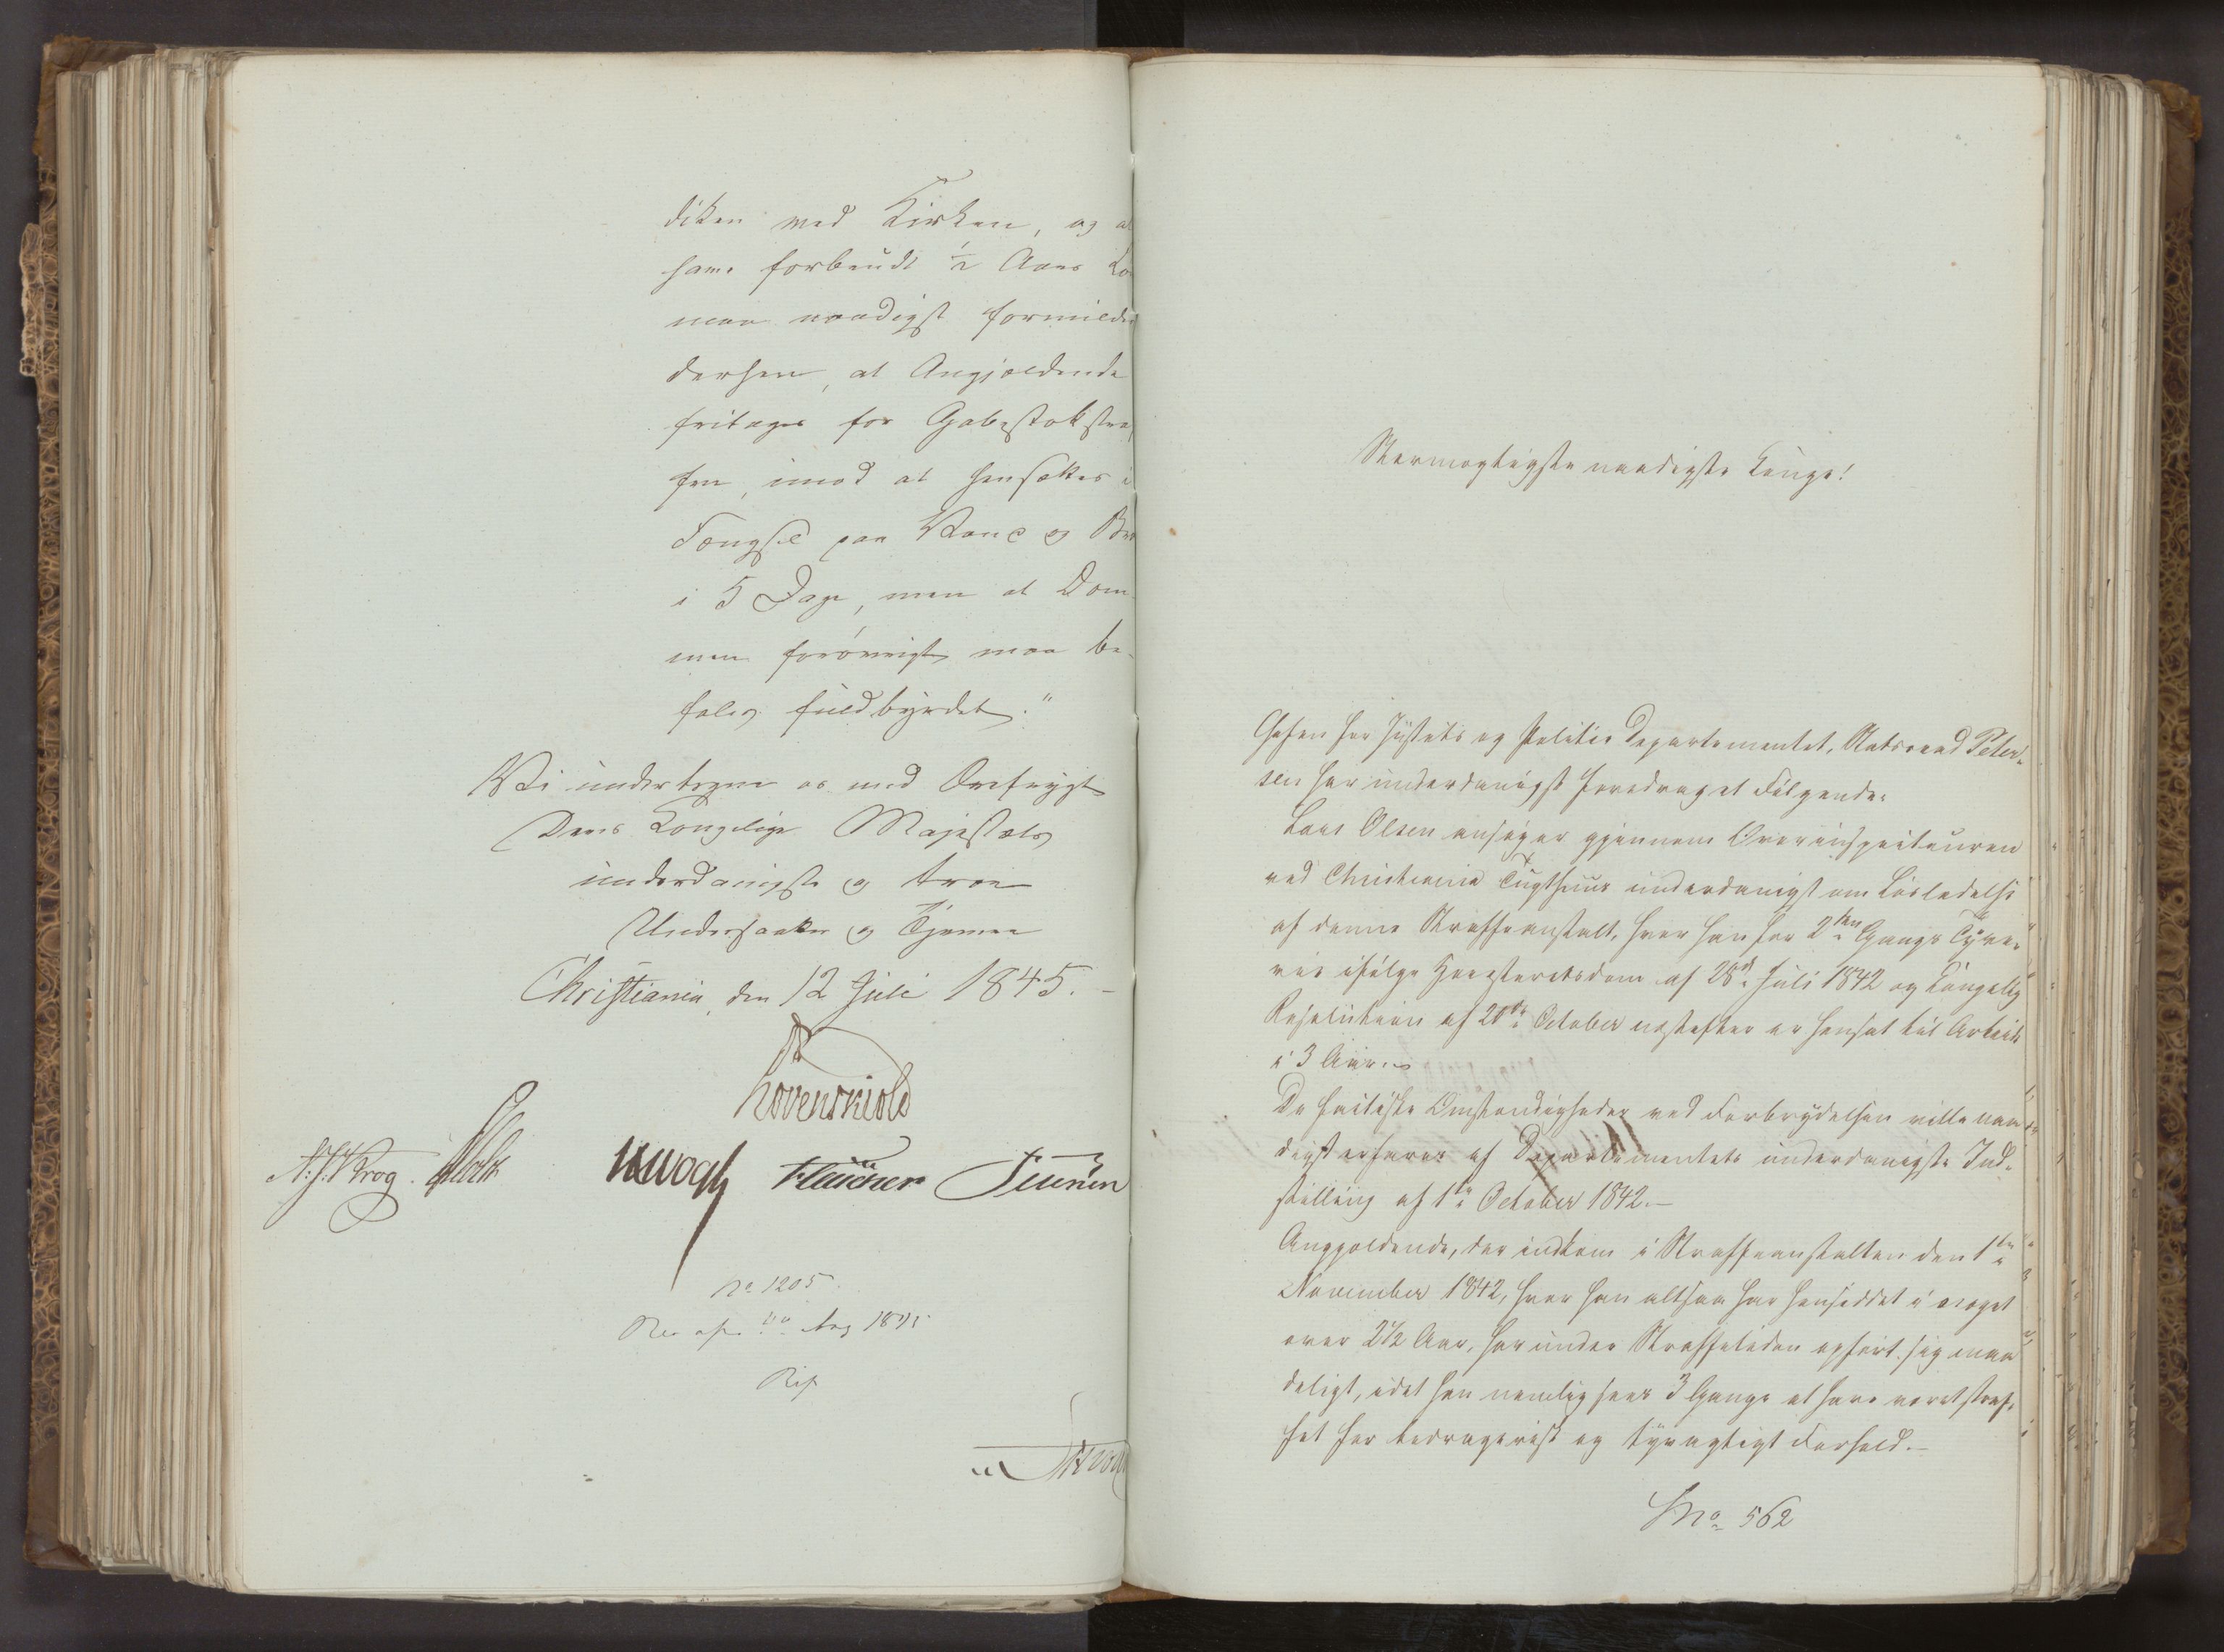 diken med Kirken, og al
samt forbundt ½ Aars Lo
maa naadigst formildes
derhen, at Angjældende
fritages for Gabestokstraf
fen, imod at hensættes i
Fængsel paa Vand og Brø
i 5 Dage, men at Dom-
men forøvrigt maa be-
fales fuldbyrdet."
Vi undertegne os med Ærefrygt
Deres Kongelige Majestæts
underdanigste og troe
Undersaatter og Tjenere
Christiania, den 12 Juli 1845.
Løvenskiold
N. J. Krog. Holst Vogh Fleischer
No 1205
Aug 1845
Stormægtigste naadigste Konge!
Chefen for Justits og Politie Departementet, Statsraad Peter-
sen har underdanigst foredraget Følgende:
Lars Olsen ansøger gjennem Overinspecteuren
ved Christiania Tugthuus underdanigst om Løsladelse
af denne Straffeanstalt, hvor han for 2den Gangs Tyve-
rie ifølge Høiesteretsdom af 28d Juli 1842 og Kongelig
Resolution af 20de October næstefter er hensat til Arbeide
i 3 Aar.
De factiske Omstændigheder ved Forbrydelsen ville naa-
digst erfares af Departementets underdanigste Ind-
stilling af 1ste October 1842.-
Angjældende, der indkom i Straffeanstalten den 1ste
November 1842, hvor han altsaa har hensiddet i noget
over 2½ Aar, har under Straffetiden opført sig maa-
deligt, idet han nemlig sees 3 Gange at have været straf-
fet for bedragerisk og tyvagtigt Forhold.-
No 562